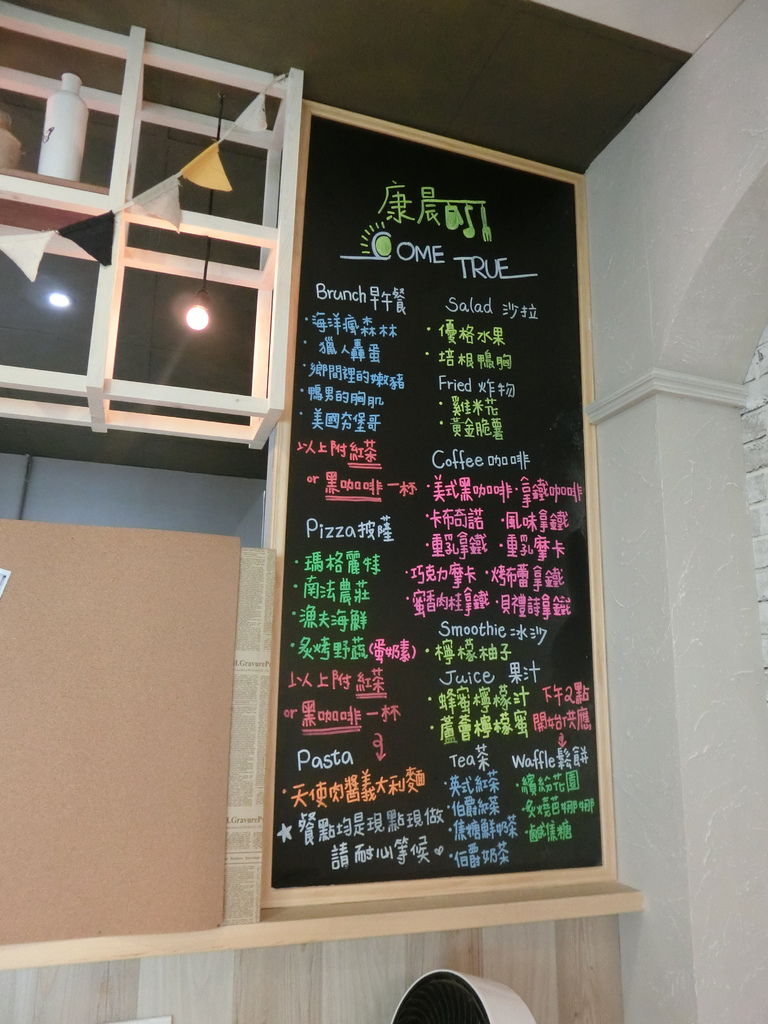 康晨
COME TRUE
Brunch 早午餐
·海洋瘋森林
·獵人轟蛋
·鄉間裡的嫩豬
·鴨男的胸肌
·美國夯堡哥
以上附紅茶
or 黑咖啡一杯
Pizza 披薩
·瑪格麗特
·南法農莊
·漁夫海鮮
·炙烤野蔬(蛋奶素)
以上附紅茶
or 黑咖啡一杯
Pasta
·天使肉醬義大利麵
★餐點均是現點現做
請耐心等候♡
Salad 沙拉
·優格水果
·培根鴨胸
Fried 炸物
·雞米花
·黃金脆薯
Coffee 咖啡
·美式黑咖啡 ·拿鐵咖啡
·卡布奇諾 ·風味拿鐵
·重乳拿鐵 ·重乳摩卡
·巧克力摩卡 ·烤布蕾拿鐵
·蜜香肉桂拿鐵 ·貝禮詩拿鐵
Smoothie 冰沙
·檸檬柚子
Juice 果汁
·蜂蜜檸檬汁
·蘆薈檸檬蜜
下午2點
開始供應
Tea 茶
·英式紅茶
·伯爵紅茶
·焦糖鮮奶茶
·伯爵奶茶
Waffle 鬆餅
·繽紛花園
·炙燒芭娜娜
·鹹焦糖